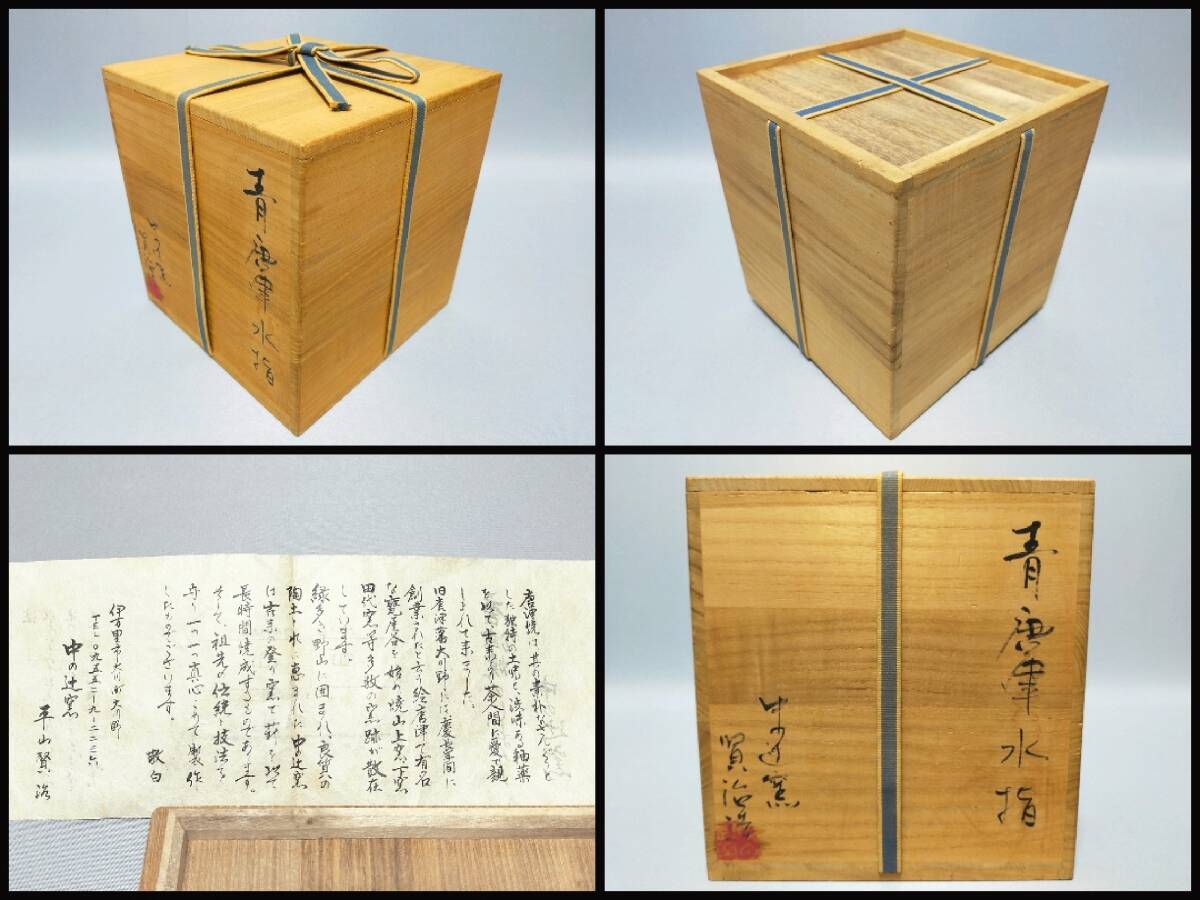 青唐津水指
中辻窯
賢治
唐津焼は其の素朴な
した独特の土味と渋味ある釉薬
を以て古来より茶人間に愛で親
しまれて来ました。
旧唐津藩大川野には慶長年間に
創業されたと云う絵唐津で有名
な甕屋谷を始め焼山上窯、下窯
田代窯等多数の窯跡が散在
しています。
緑多き野山に囲まれ、良質の
陶土これに恵まれた中の辻窯
は古来の登り窯にて薪を以て
長時間焼成するものであります。
そして、祖先の伝統と技法を
守り一つ一つ真心こめて製作
したものでございます。
敬白
伊万里市大川町大川野
TEL〇九五五二-九-二二三六
中の辻窯
平山賢治
青唐津水指
中辻窯
賢治造